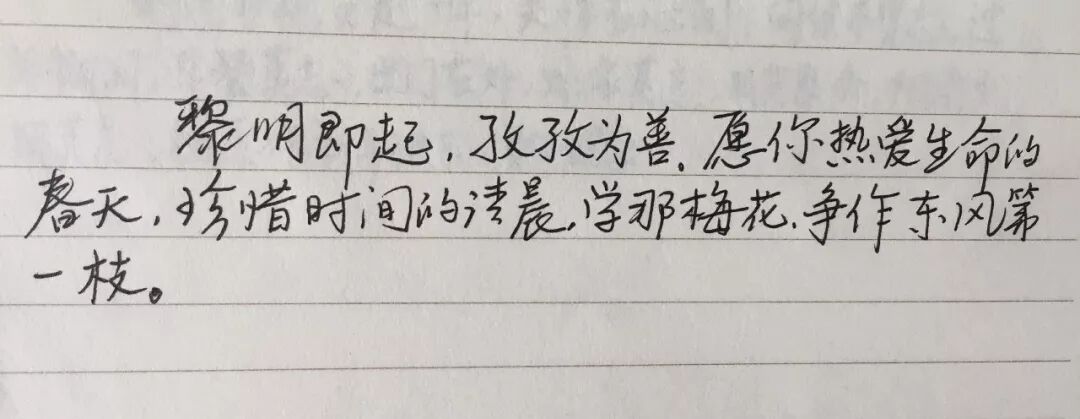 黎明即起,孜孜为善.愿你热爱生命的
春天,珍惜时间的清晨,学那梅花,争作东风第
一枝。